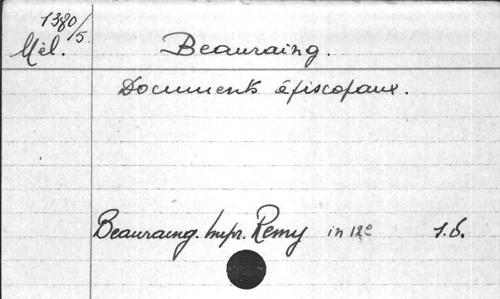 1380/5
Mél. Beauraing.
Documents épiscopaux.
Beauraing. Impr. Remy in 12º s.d.